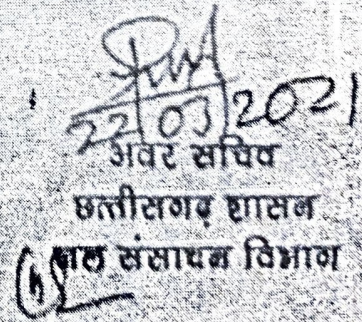 22/03/2021
अवर सचिव
छत्तीसगढ़ शासन
जल संसाधन विभाग